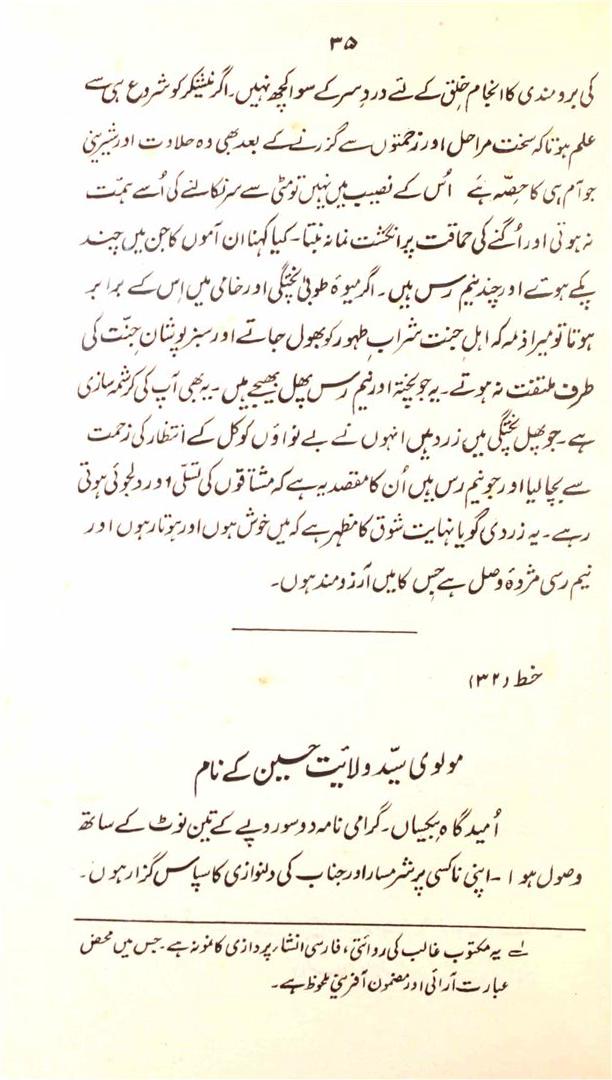 ۳۵
کی برومندی کا انجام خلق کے لئے دردِ سر کے سوا کچھ نہیں۔ اگر نیشکر کو شروع ہی سے
علم ہوتا کہ سخت مراحل اور زحمتوں سے گزرنے کے بعد بھی وہ حلاوت اور شیرینی
جو آم ہی کا حصّہ ہے اُس کے نصیب میں نہیں تو مٹی سے سر نکالنے کی اُسے ہمّت
نہ ہوتی اور اُگنے کی حماقت پر انگشت نما نہ بنتا۔ کیا کہنا ان آموں کا جن میں چند
پکے ہوئے اور چند نیم رس ہیں۔ اگر میوۂ طوبیٰ پختگی اور خامی میں اس کے برابر
ہوتا تو میرا ذمہ کہ اہلِ جنت شرابِ طہور کو بھول جاتے اور سبز پوشانِ جنّت کی
طرف ملتفت نہ ہوتے۔ یہ جو پختہ اور نیم رس پھل بھیجے ہیں۔ یہ بھی آپ کی کرشمہ سازی
ہے۔ جو پھل پختگی میں زرد ہیں انہوں نے بے نواؤں کو کل کے انتظار کی زحمت
سے بچا لیا اور جو نیم رس ہیں اُن کا مقصد یہ ہے کہ مشتاقوں کی تسلّی اور دلجوئی ہوتی
رہے۔ یہ زردی گویا نہایت شوق کا مظہر ہے کہ میں خوش ہوں اور ہوتا رہوں اور
نیم رسی مژدۂ وصل ہے جس کا میں آرزومند ہوں۔
خط (۳۲)
مولوی سیّد ولائیت حسین کے نام
اُمید گاہِ بیکساں۔ گرامی نامہ دو سو روپے کے تین نوٹ کے ساتھ
وصول ہوا۔ اپنی ناکسی پر شرمسار اور جناب کی دلنوازی کا سپاس گزار ہوں۔
لے یہ مکتوب غالب کی روائتی، فارسی انشاء پردازی کا نمونہ ہے۔ جس میں محض
عبارت آرائی اور مضمون آفرینی ملحوظ ہے۔